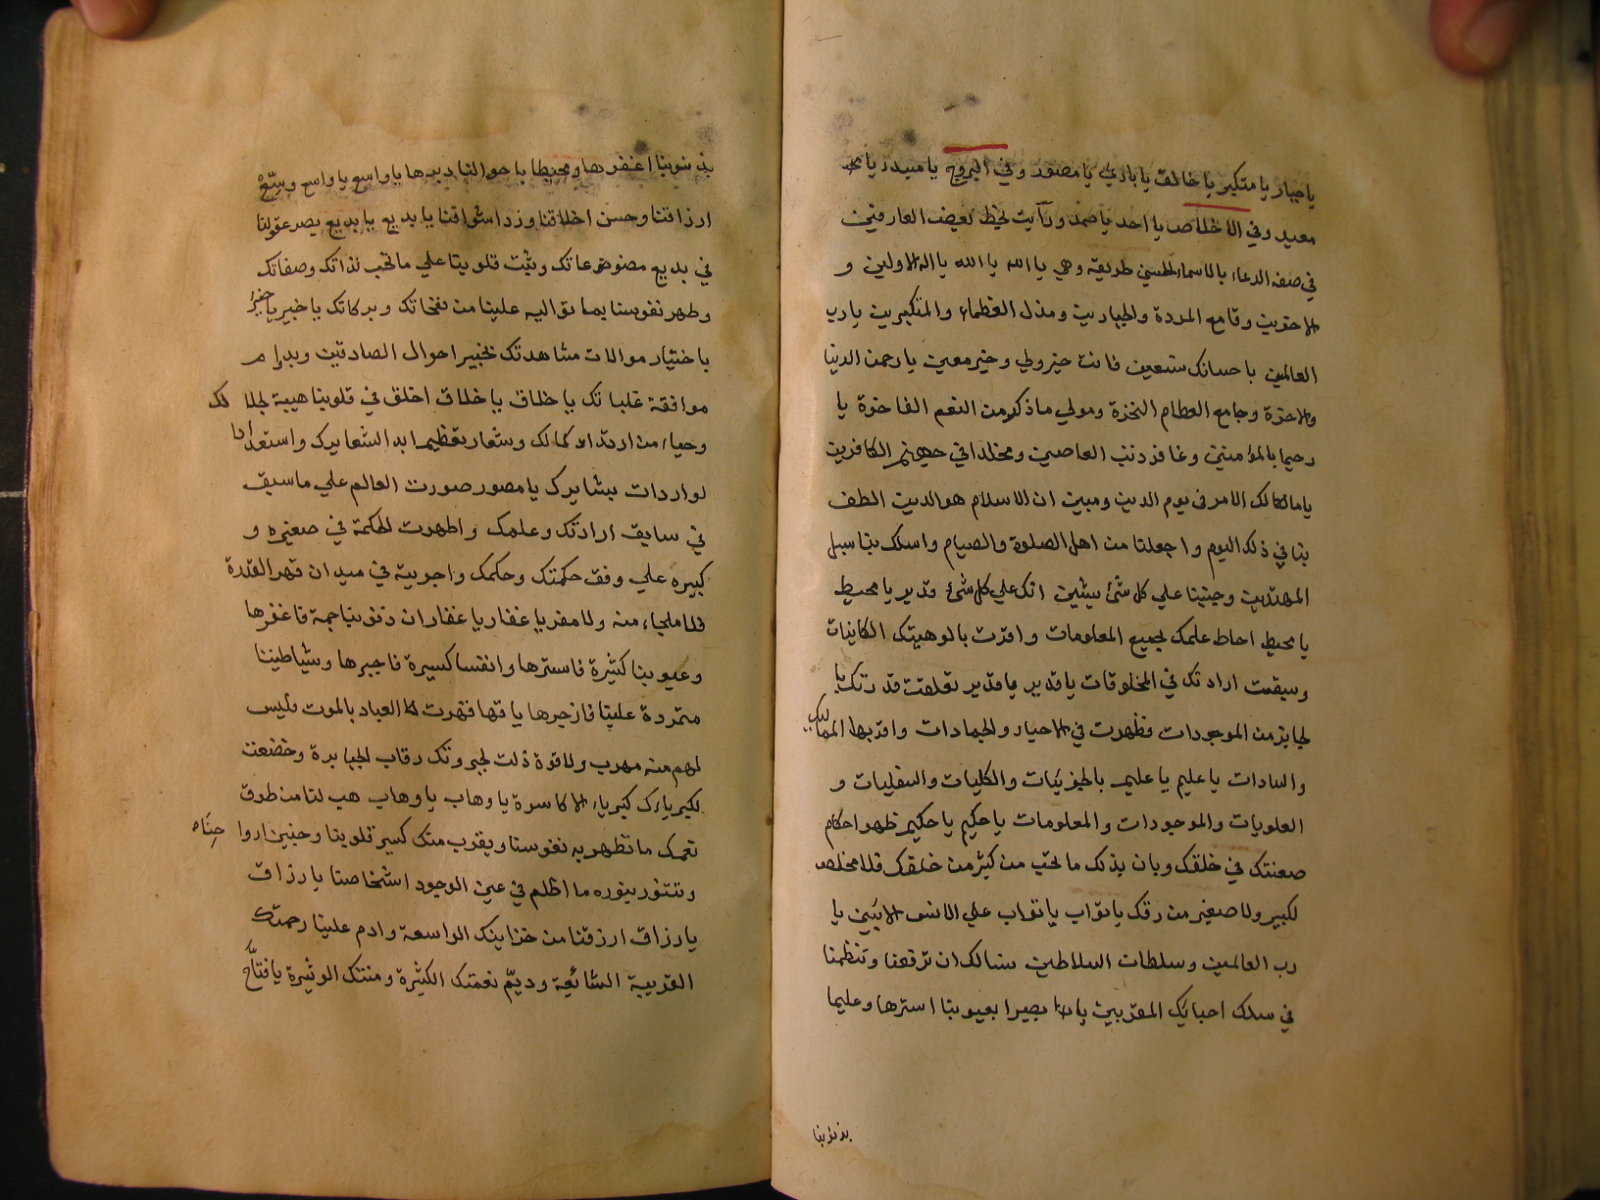 يا جبار يا متكبر يا خالق يا بارئ يا مصور وفي البروج يا مبدئ يا
معيد وفي الاخلاص يا احد يا صمد ورأيت بخط بعض العارفين
في صفة الدعاء بالاسماء الحسنى طريقه وهي يا الله يا الله يا اله الاولين و
الاخرين وقامع المردة والجبارين ومذل العظماء والمتكبرين يا رب
العالمين باحسانك نستعين فانت خير ولي وخير معين يا رحمن الدنيا
والاخرة وجامع العظام النخرة ومولي ما ذكر من النعم الفاخرة يا
رحيما بالمؤمنين وغافر ذنب العاصين ومخلدا في جهنم الكافرين
يا مالكا لك الامر في يوم الدين ومبين ان الاسلام هو الدين الطف
بنا في ذلك اليوم واجعلنا من اهل الصلوة والصيام واسلك بنا سبيل
المهتدين وجنبنا علي كل شئ يشين انك علي كل شئ قدير يا محيط
يا محيط احاط علمك بجميع المعلومات واقرت بالوهيتك الكاينات
وسبقت ارادتك في المخلوقات يا قدير يا قدير تعلقت قدرتك با
لجايز من الموجودات فظهرت في الاحياء والجمادات واقر بها المماليك
والسادات يا عليم يا عليم بالجزئيات والكليات والسفليات و
العلويات والموجودات والمعلومات يا حكيم يا حكيم ظهر احكام
صنعتك في خلقك وبان بذلك ما تحب من كثير من خلقك فلا مخلص
لكبير ولا صغير من رقك يا تواب يا تواب علي الانس الايبين يا
رب العالمين وسلطان السلاطين نسالك ان ترفعنا وتنظمنا
في سلك احبائك المقربين يا بصيرا بعيوبنا استرها وعليما
بذنوبنا
بذنوبنا اغفرها ومحيطا باحوالنا دبرها يا واسع يا واسع وسّع
ارزاقنا وحسن اخلاقنا وزد اشواقنا يا بديع يا بديع بصر عقولنا
في بديع مصنوعاتك وثبت قلوبنا علي ما تحب لذاتك وصفاتك
وطهر نفوسنا بما تواليه علينا من نفحاتك وبركاتك يا خبير يا خبير
باختيار موالات مشاهدتك تخبير احوال الصادقين وبدا م
موافقة يا خلاق يا خلاق اخلق في قلوبنا هيبة لجلا لك
وحياء من ارتداد كمالك وشعار تعظيم ابد الشعايرك واستعدادا
لواردات بشايرك يا مصور صورت العالم علي ما سبق
في سابق ارادتك وعلمك واظهرت الحكمة في صغيره و
كبيره علي وفق حكمتك وحكمك واجريته في ميدان قهر القدرة
فلا ملجاء منه ولا مفر يا غفار يا غفار ان ذنوبنا جمة فاغفرها
وعيوبنا كثيرة فاسترها وانفسنا كسيرة فاجبرها وشياطيننا
متمردة علينا فازجرها يا قهار قهرت العباد بالموت فليس
لهم منه مهرب ولا قوة ذلت لجبروتك رقاب الجبابرة وخضعت
لكبرياءك كبرياء الاكاسرة يا وهاب يا وهاب هب لنا من طرق
نعمك ما تطهر به نفوسنا ويقرب منك كسير قلوبنا
وتتنور بنوره ما اظلم في عين الوجود اشخاصنا يا رزاق
يا رزاق ارزقنا من خزاينك الواسعة وادم علينا رحمتك
القريبة الشائعة وديّم نعمتك الكثيرة ومنتك الوثيرة يا فتاح